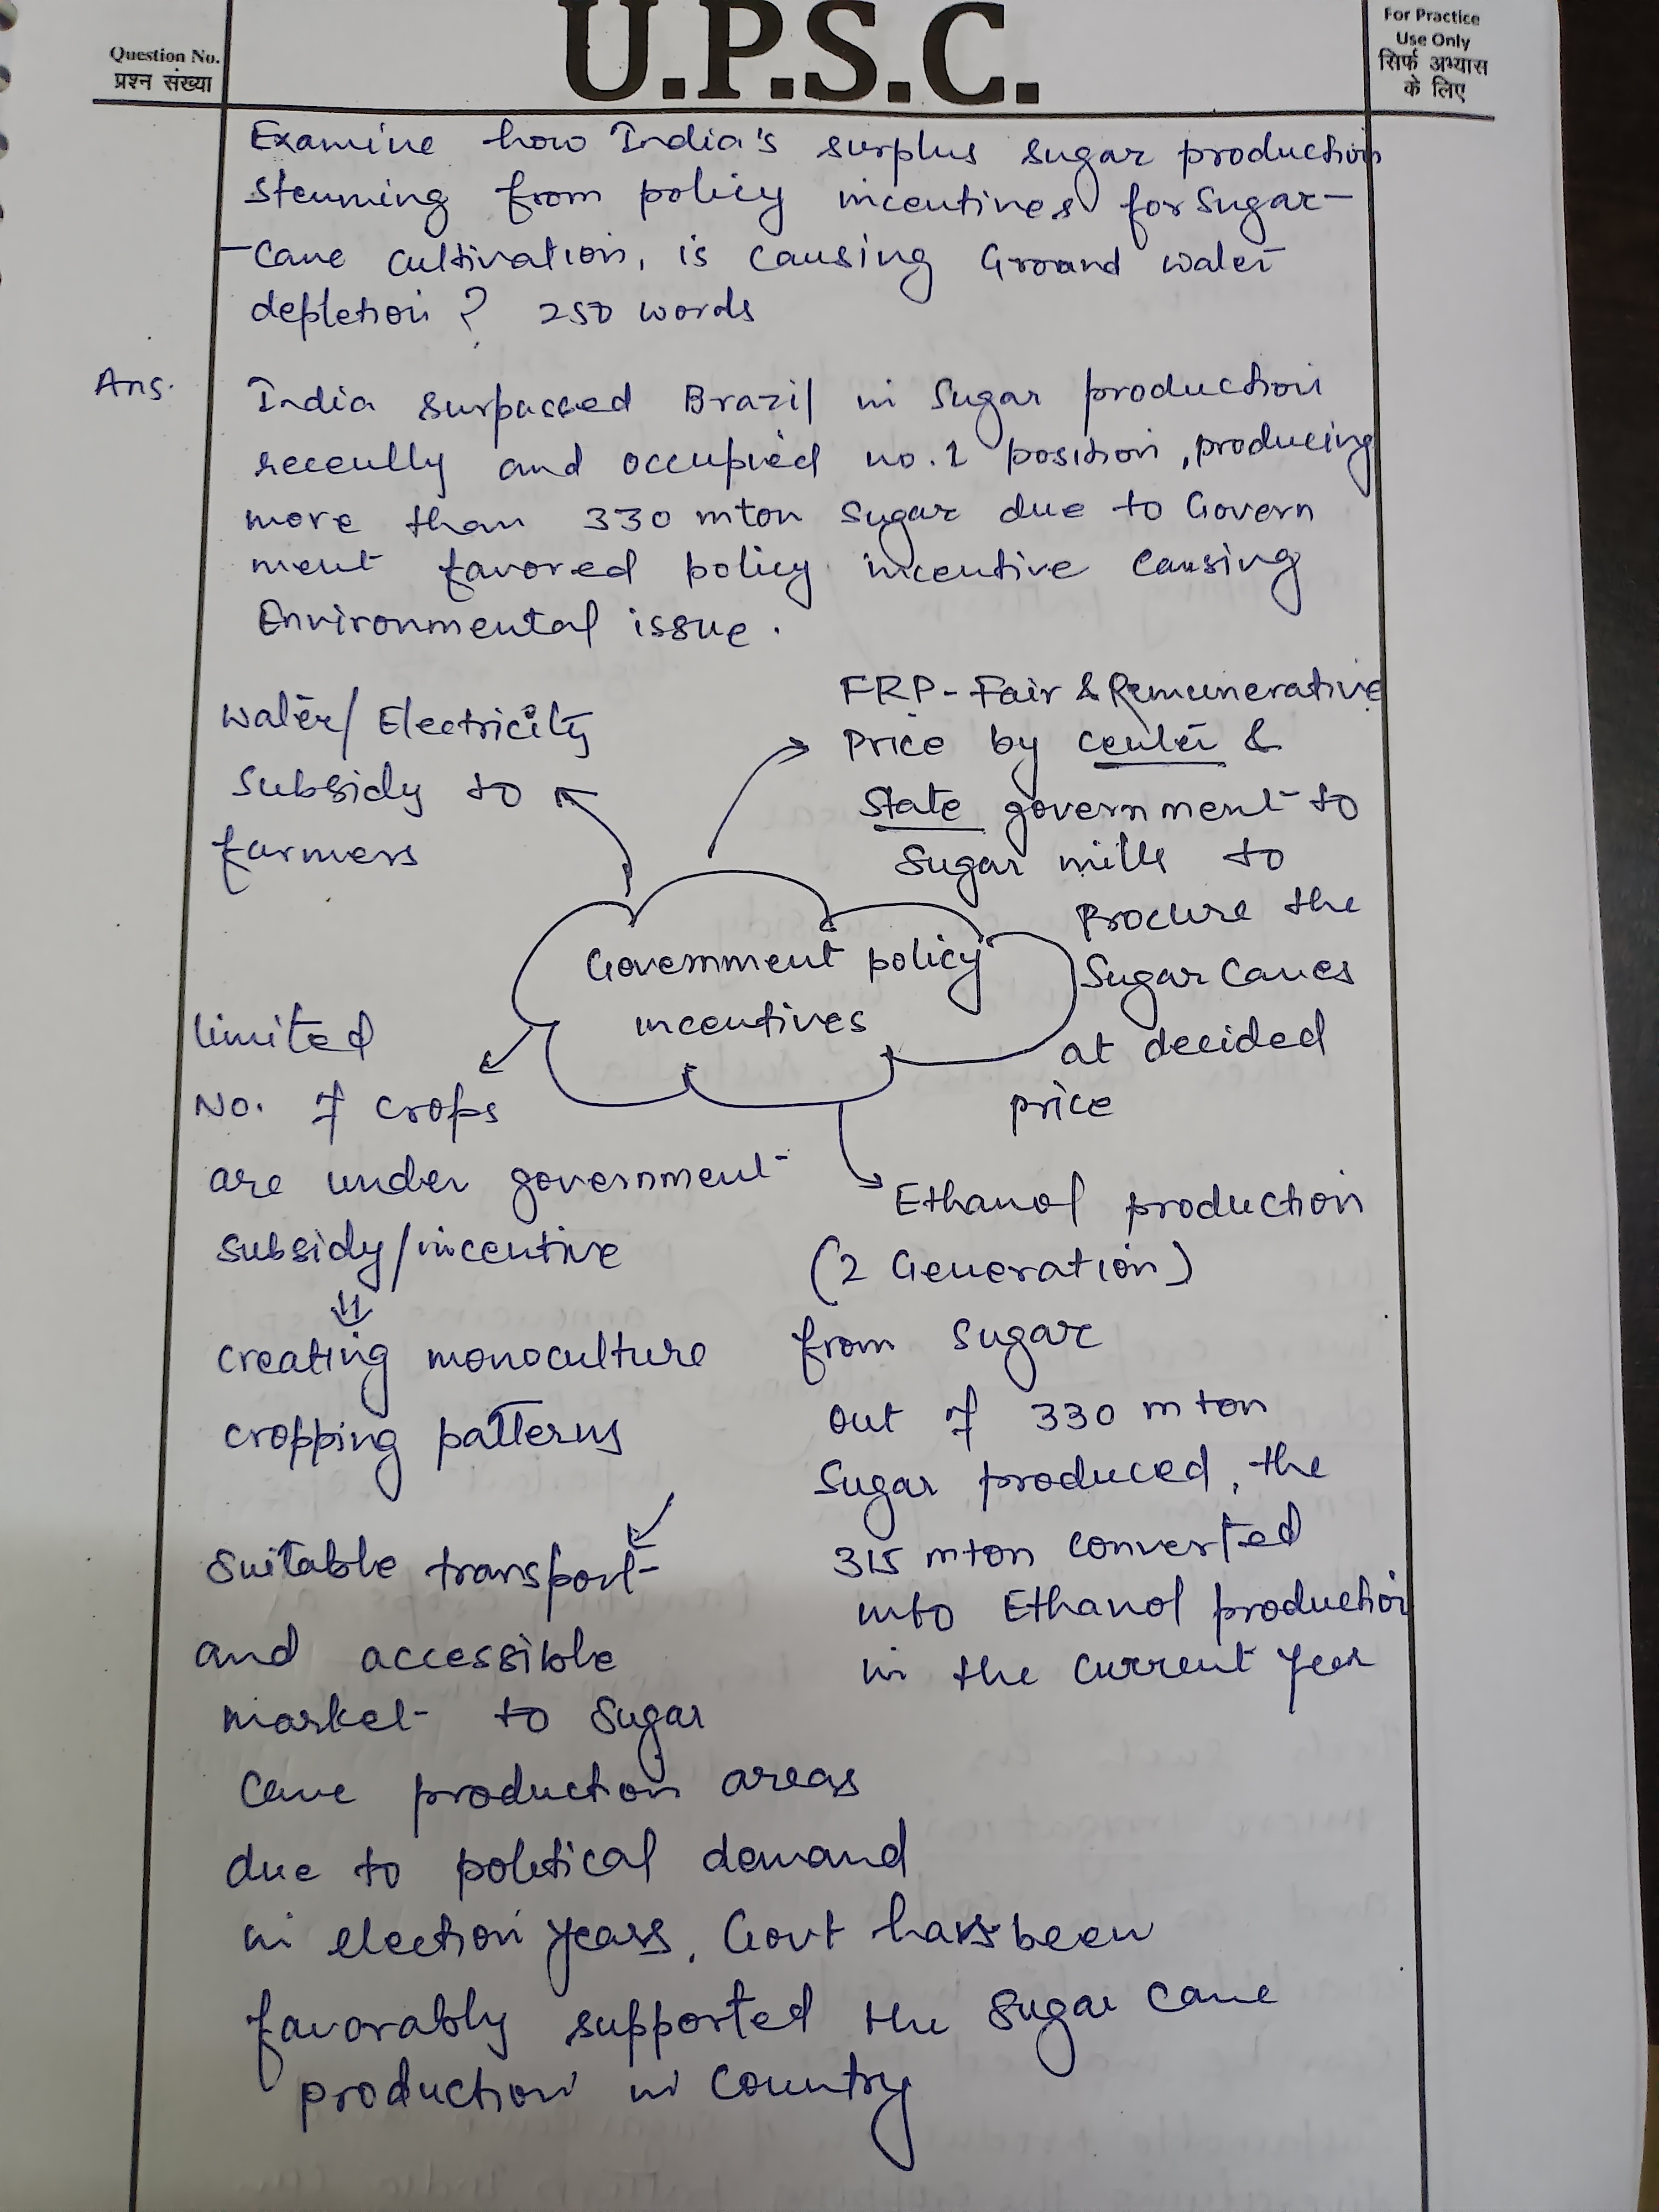 Question No.
प्रश्न संख्या
U.P.S.C.
For Practice
Use Only
सिर्फ अभ्यास
के लिए
Examine how India's surplus sugar production
stemming from policy incentives for Sugar-
-Cane cultivation, is causing Ground water
depletion ? 250 words
Ans.
India surpassed Brazil in Sugar production
recently and occupied no.1 position, producing
more than 330 mton sugar due to Govern
ment favored policy incentive causing
Environmental issue.
Water/Electricity
Subsidy to
farmers
FRP - Fair & Remunerative
Price by center &
State government to
Sugar mills to
Procure the
Sugar Canes
at decided
price
Government policy
incentives
limited
No. of crops
are under government
subsidy/incentive
⇓
creating monoculture
cropping patterns
Ethanol production
(2 Generation)
from sugar
out of 330 mton
Sugar produced, the
315 mton converted
into Ethanol production
in the current year
Suitable transport
and accessible
market to Sugar
Cane production areas
due to political demand
in election years, Govt has been
favorably supported the Sugar cane
production in Country